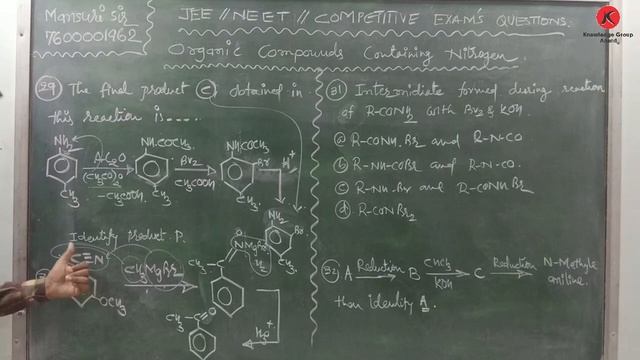 Mansuri Sir
7600001962
JEE // NEET // COMPETITIVE EXAM'S QUESTIONS.
Organic Compounds Containing Nitrogen.
K
Knowledge Group
Anand
29 The final product C obtained in
this reaction is.....
NH2
Ac2O
(CH3CO)2O
-CH3COOH
CH3
NH.COCH3
CH3
Br2
CH3COOH
NH.COCH3
Br
CH3
H+
NH2
Br
CH3
Identify product P.
C≡N
OCH3
CH3MgBr
CH3 - C
NMgBr
H3O+
CH3 - C = O
31 Intermidiate formed during reaction
of R-CONH2 with Br2 & KOH.
a R-CONH.Br and R-N-CO
b R-NH-COBr and R-N-CO.
c R-NH-Br and R-CONHBr
d R-CONBr2
32 A Reduction B CHCl3 KOH C Reduction N-Methyle
aniline.
then identify A.